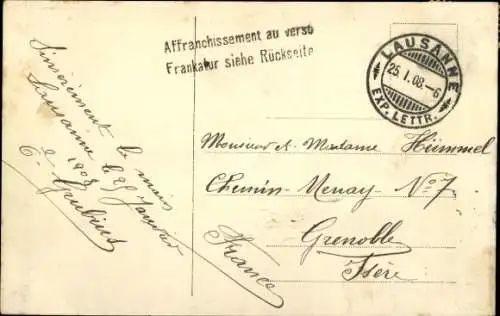 Affranchissement au verso
Frankatur siehe Rückseite
LAUSANNE
25.I.08.-6
EXP. LETTR.
Sincèrement la main
Lausanne le 25 Janvier
1908
E.
Monsieur et Madame Hümmel
Chemin-Menay-No 7
Grenoble
Isère
France